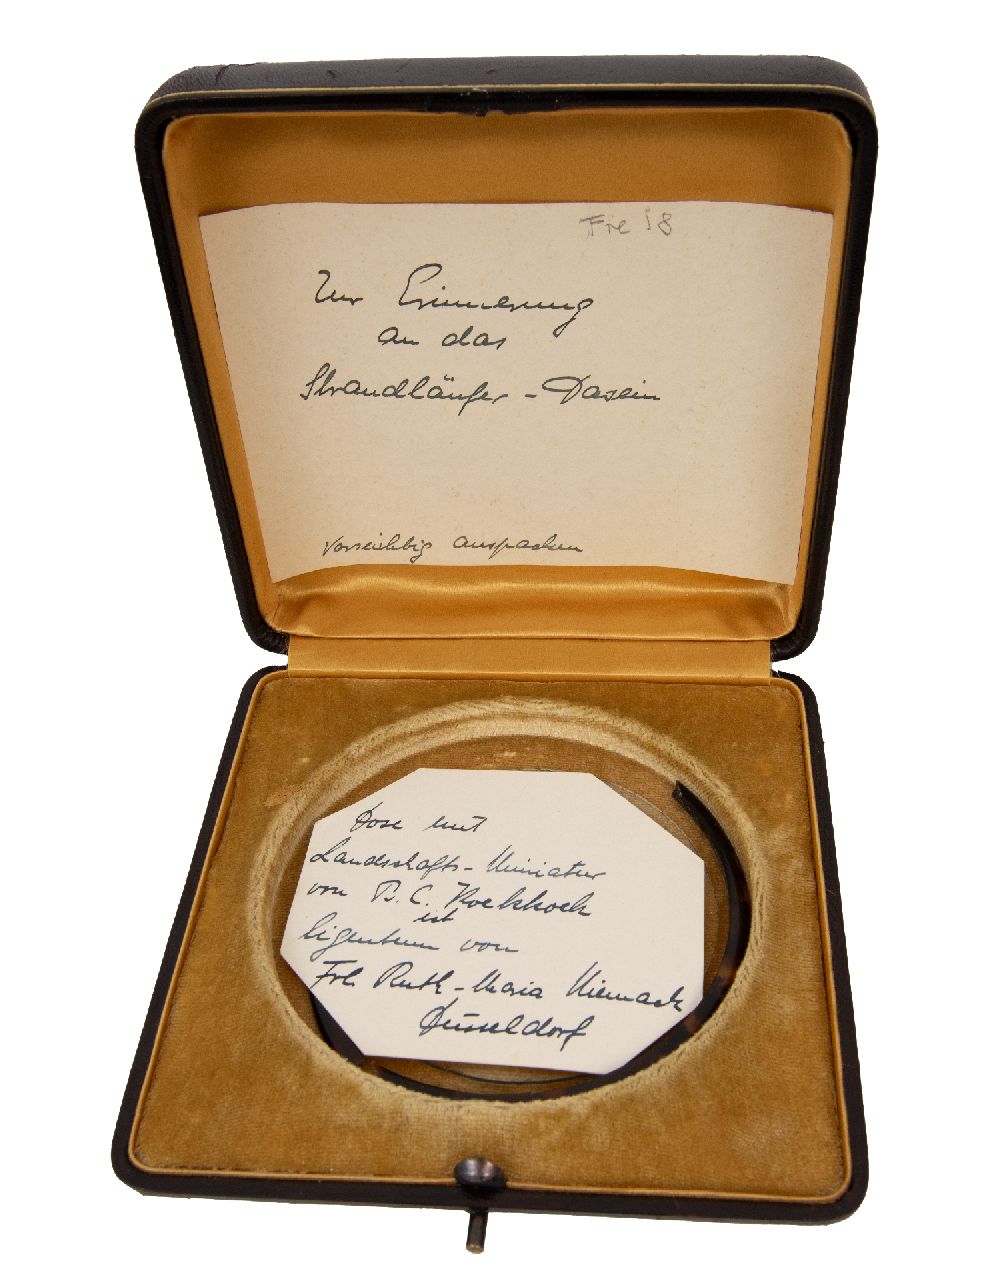 Fre 18
Zur Erinnerung
an das
Strandläufer-Dasein
vorsichtig auspacken
Dose mit
Landschafts-Miniatur
von B.C. Koekkoek
ist
Eigentum von
Frl. Ruth-Maria Niemack
Düsseldorf